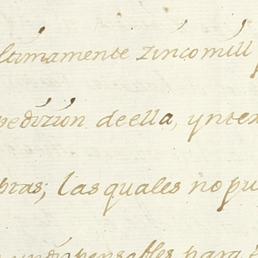 ltimamente zinco mill
pedizion de ella, ynte
bras; las quales no pu
yndispensables para